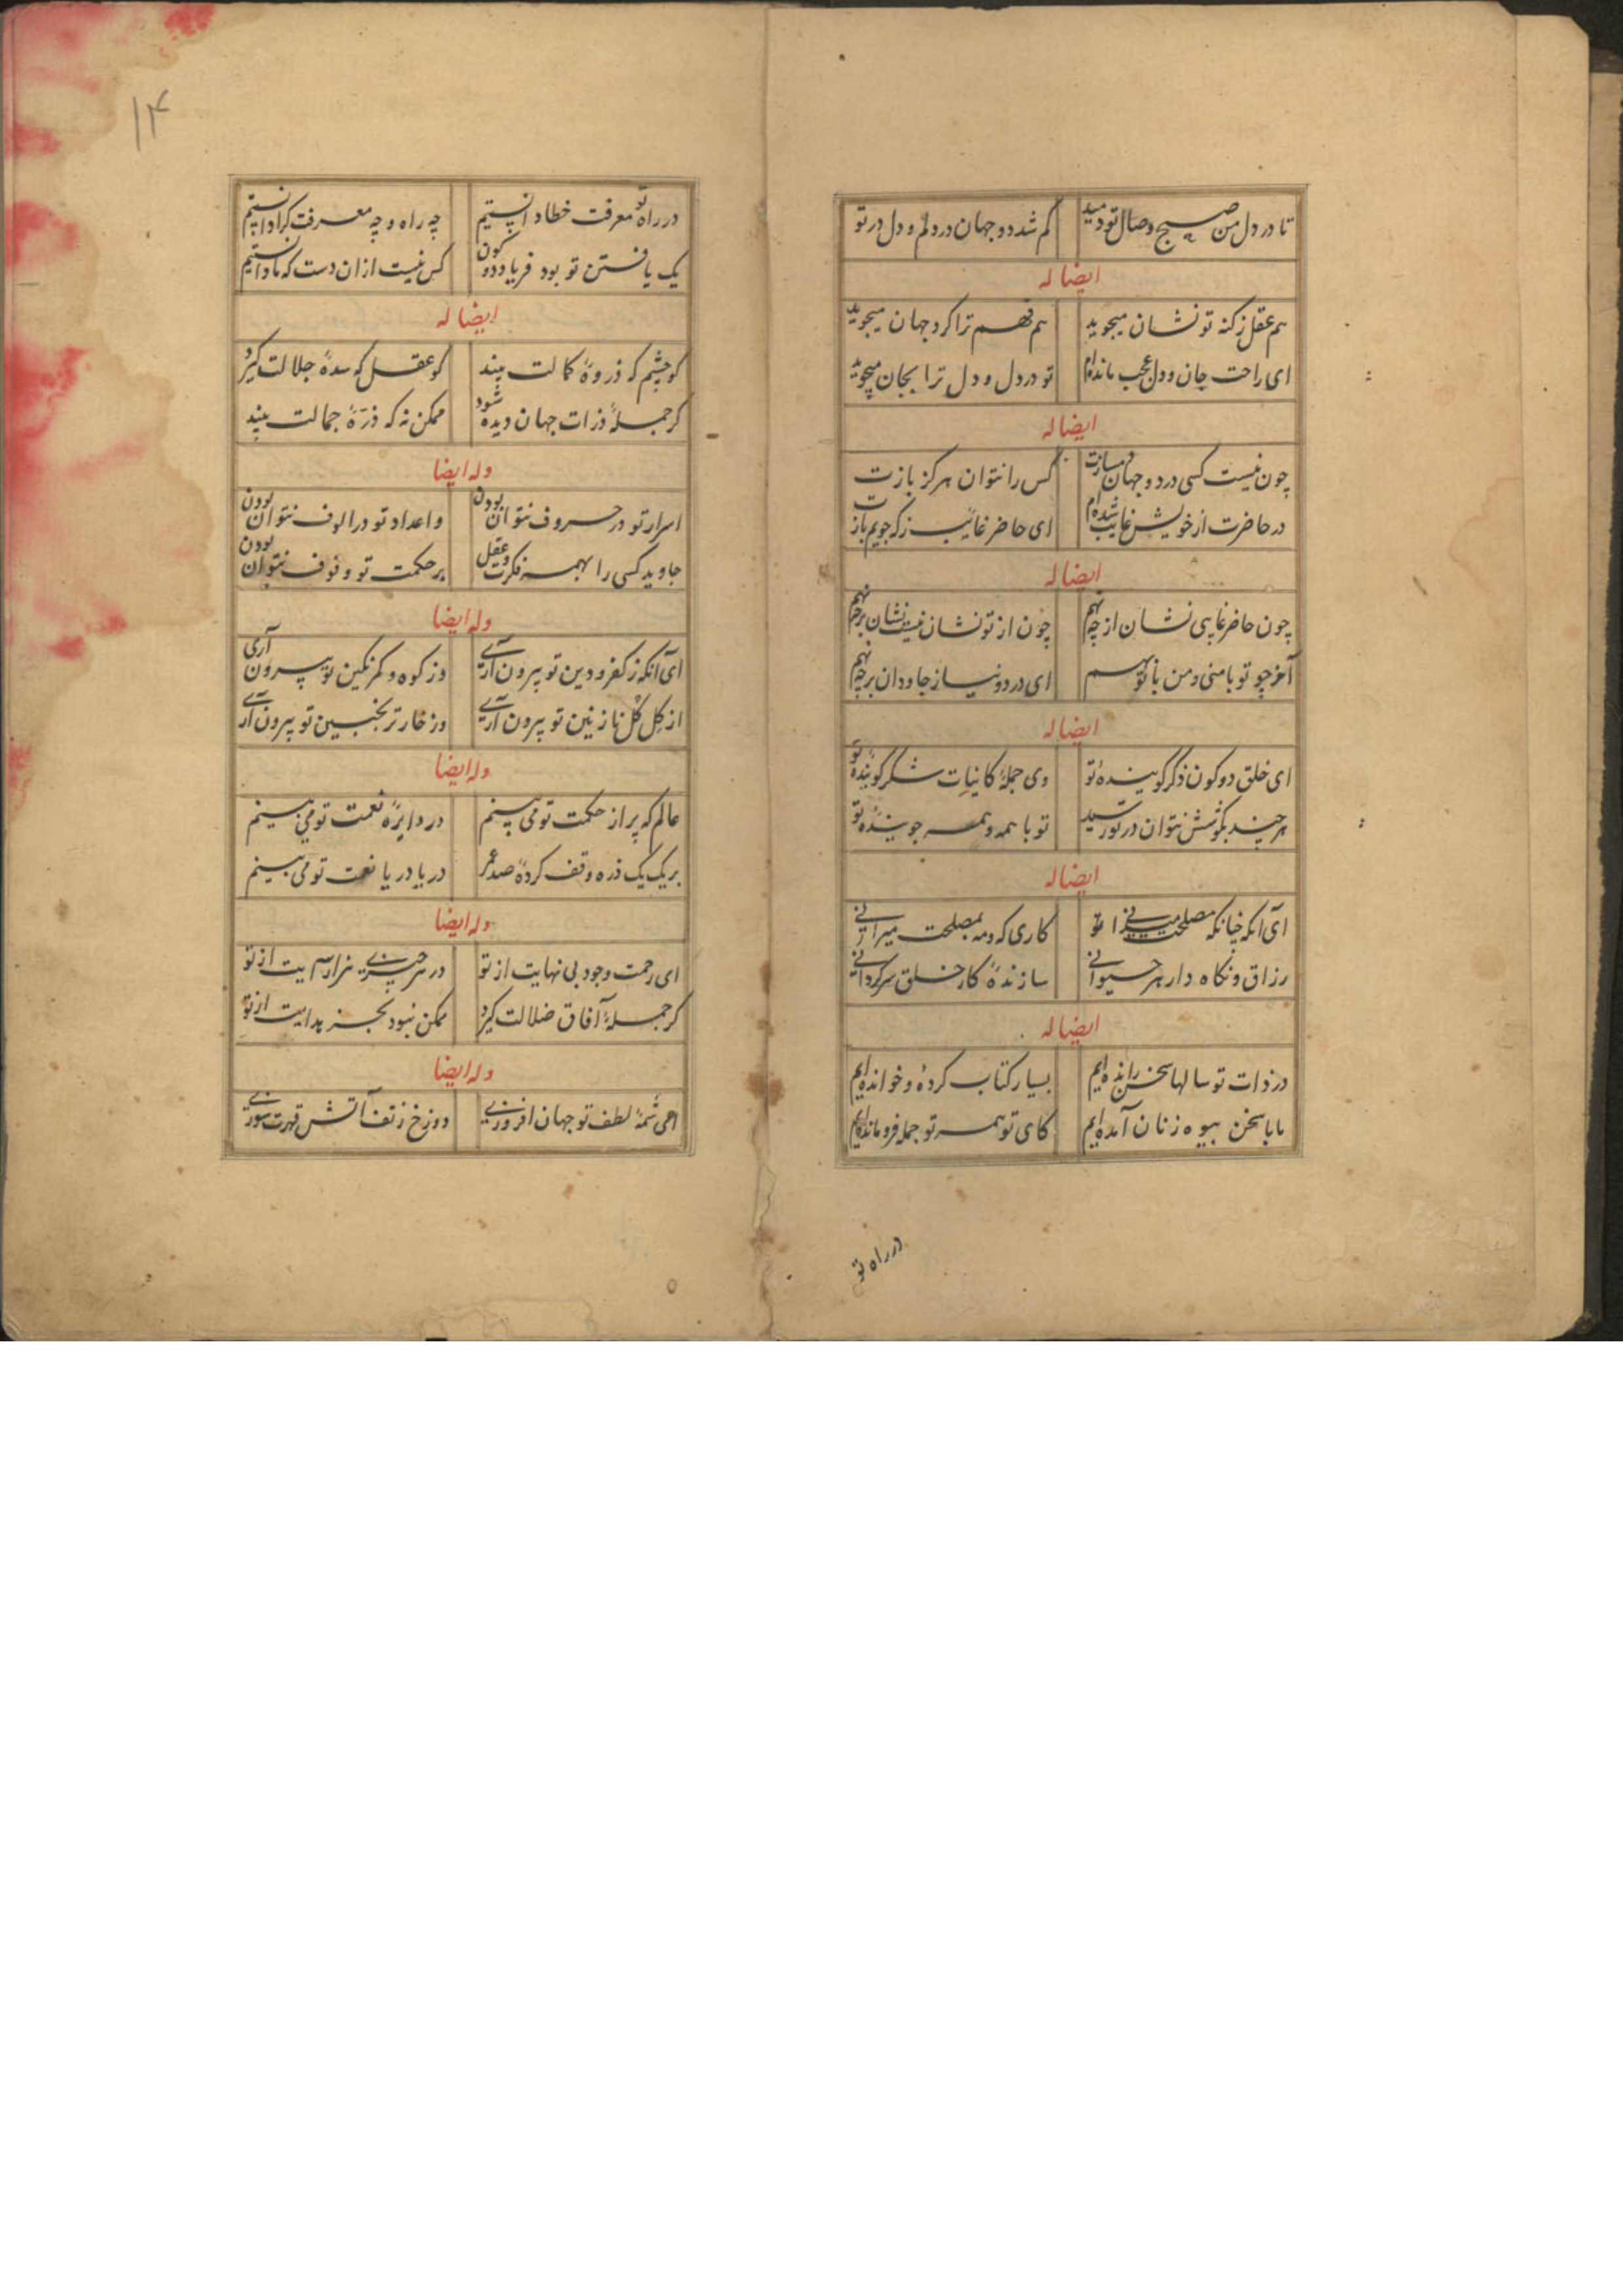 تا در دل من صبح وصال تو دمید گم شد دو جهان در دلم و دل در تو
ایضا له
هم عقل ز کنه تو نشان میجوید هم فهم ترا کرد جهان میجوید
ای راحت جان و دل عجب مانده‌ام تو در دل و دل ترا بجان میجوید
ایضا له
چون نیست کسی در دو جهان دمسازت کس را نتوان هرگز بازت
در حاضرت از خویش غایب شده‌ام ای حاضر غایب ز که جویم بازت
ایضا له
چون حاضر غایبی نشان از چه نهم چون از تو نشان نیست نشان بر چه نهم
آخر چو تو با منی و من با تو بهم ای در دو نیاز جاودان بر چه نهم
ایضا له
ای خلق دو کون ذکر گوینده تو وی جملهٔ کاینات شکر گوینده تو
هر چند بکوشش نتوان در تو رسید تو با همه و همه جویندهٔ تو
ایضا له
ای آنکه چنانکه مصلحت میدانی کاری که و مه بمصلحت میرانی
رزاق و نگاه دار هر حیوانی سازندهٔ کار خلق سرگردانی
ایضا له
در ذات تو سالها سخن رانده‌ایم بسیار کتاب کرده و خوانده‌ایم
ما با سخن بیوه زنان آمده‌ایم کای تو همه تو جمله فرو مانده‌ایم
در راه تو
۱۴
در راه تو معرفت خطا دانستیم چه راه و چه معرفت کرا دانستیم
یک یافتن تو بود فریاد دو کون کس نیست ازان دست که ما دانستیم
ایضا له
کو چشم که ذروهٔ کمالت بیند کو عقل که سدهٔ جلالت گیرد
گر جملهٔ ذرات جهان دیده شود ممکن نه که ذرهٔ جمالت بیند
وله ایضا
اسرار تو در حروف نتوان بودن و اعداد تو در الوف نتوان بودن
جاوید کسی را بهمه فکرت و عقل بر حکمت تو وقوف نتوان بودن
وله ایضا
ای آنکه ز کفر و دین تو بیرون آری وز کوه و کمر نگین تو بیرون آری
از گل گل نازنین تو بیرون آری وز خار ترنجبین تو بیرون آری
وله ایضا
عالم که پر از حکمت تو می بینم در دایرهٔ نعمت تو می بینم
بر یک یک ذره وقف کردهٔ صد عمر دریا دریا نعمت تو می بینم
وله ایضا
ای رحمت وجود بی نهایت از تو در هر چیزی هزار آیت از تو
گر جملهٔ آفاق ضلالت گیرد ممکن نبود بجز هدایت از تو
وله ایضا
ای شمهٔ لطف تو جهان افروزی دوزخ ز تف آتش قهرت سوزی